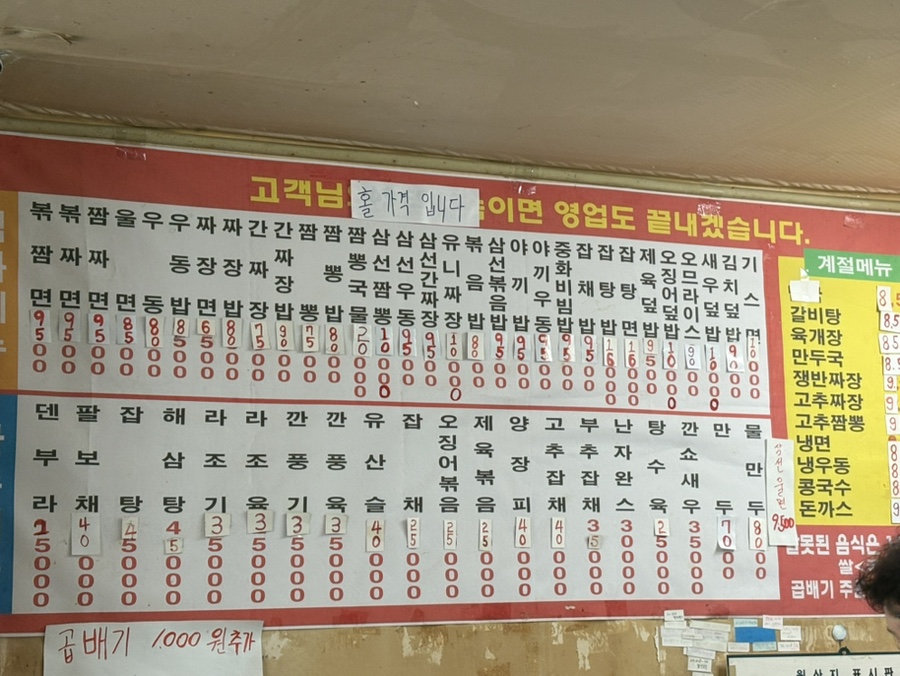 고객님
홀 가격 입니다
이면 영업도 끝내겠습니다.
볶짬면 9500
볶짜면 9500
짬짜면 9500
울면 8500
우동 8000
우동밥 8500
짜장면 6500
짜장밥 8000
간짜장 7500
간짜장밥 9000
짬뽕 7500
짬뽕밥 8000
짬뽕국물 2000
삼선짬뽕 10000
삼선우동 9500
삼선간짜장 9500
유니짜장 10000
볶음밥 8000
삼선볶음밥 9500
야끼밥 9500
야끼우동 9500
중화비빔밥 9500
잡채밥 9500
잡탕밥 16000
잡탕면 16000
제육덮밥 9500
오징어덮밥 10000
오므라이스 9000
새우덮밥 10000
김치덮밥 9000
기스면
덴부라
팔보채 40000
잡탕 45000
해삼탕 45000
라조기 35000
라조육 35000
깐풍기 35000
깐풍육 35000
유산슬 40000
잡채 25000
오징어볶음 25000
제육볶음 25000
양장피 40000
고추잡채 40000
부추잡채 35000
난자완스 30000
탕수육 25000
깐쇼새우 35000
만두 7000
물만두 8000
삼선울면 9,500
계절메뉴
갈비탕
육개장
만두국
쟁반짜장
고추짜장
고추짬뽕
냉면
냉우동
콩국수
돈까스
잘못된 음식은
쌀
곱배기
곱배기 1000 원추가
원산지 표시판